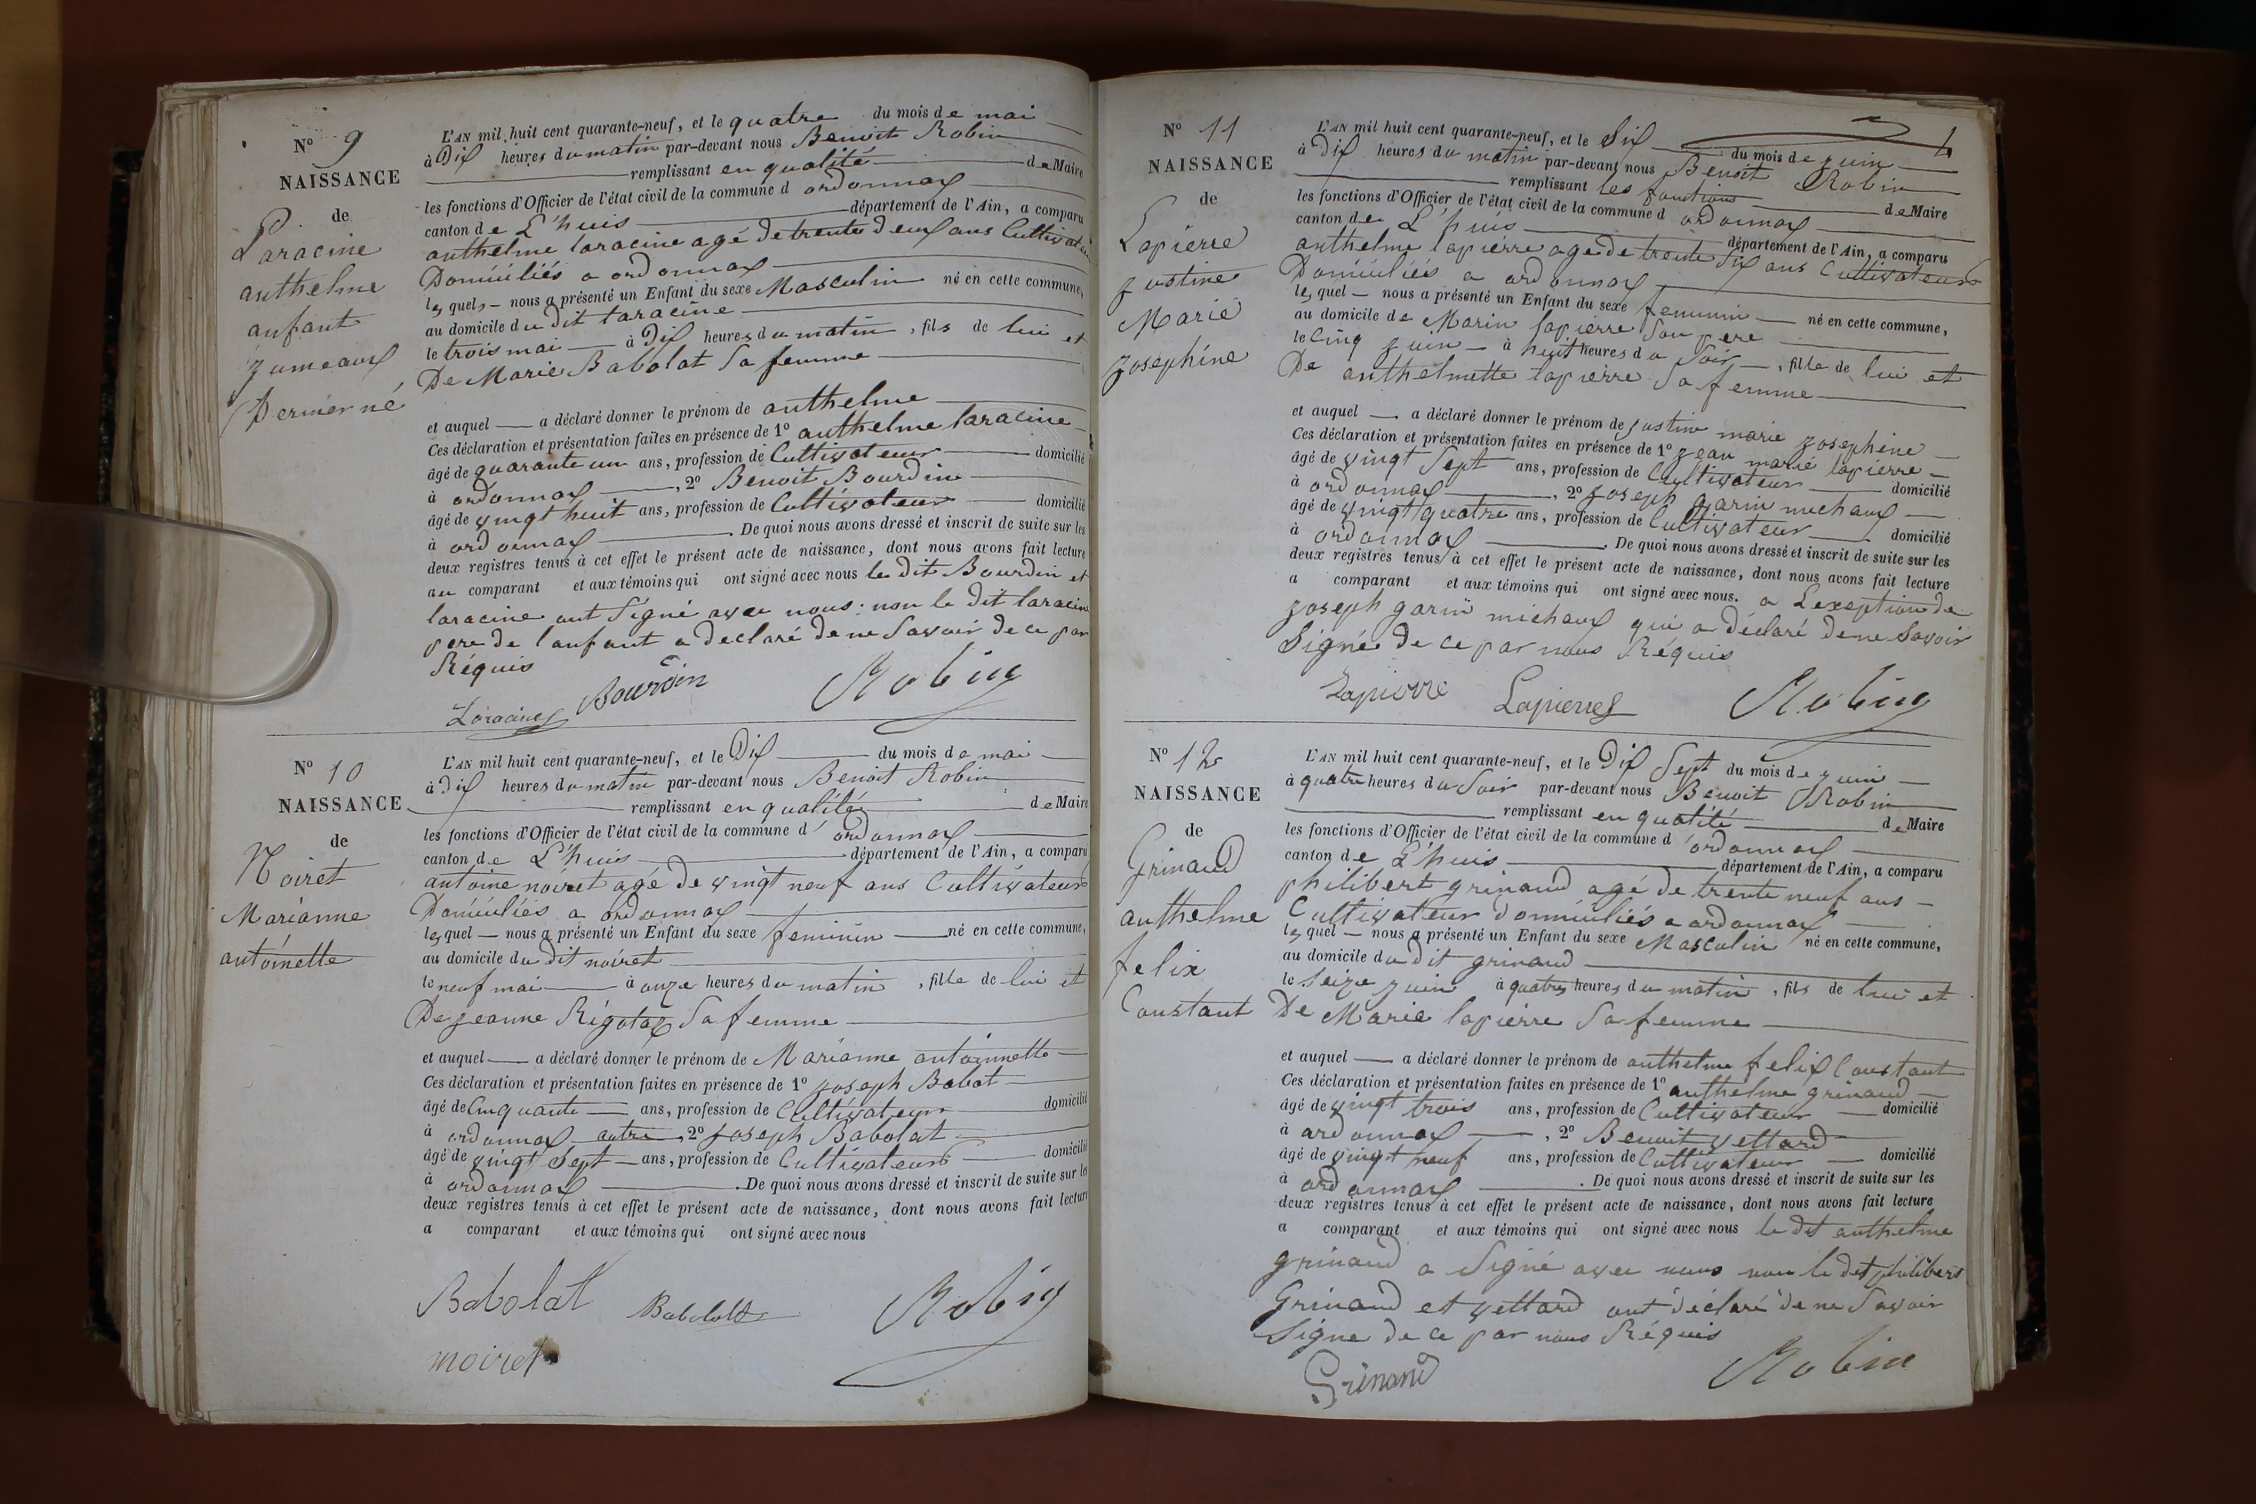 N° 9
NAISSANCE
de
Laracine
anthelme
anfant
jumeaux
dernier né
L'AN mil huit cent quarante-neuf, et le quatre du mois de mai
à Dix heures du matin par-devant nous Benoit Robin
remplissant en qualité de Maire
les fonctions d'Officier de l'état civil de la commune d ordonnax
canton de L'huis département de l'Ain, a comparu
anthelme laracine agé de trente deux ans Cultivateur
Domiciliés a ordonnax
lequel nous a présenté un Enfant du sexe Masculin né en cette commune,
au domicile du dit laracine
le trois mai à Dix heures du matin, fils de lui et
De Marie Babolat Sa femme
et auquel a déclaré donner le prénom de anthelme
Ces déclaration et présentation faites en présence de 1° anthelme laracine
âgé de quarante un ans, profession de Cultivateur domicilié
à ordonnax, 2° Benoit Bourdin
âgé de vingt huit ans, profession de Cultivateur domicilié
à ordonnax. De quoi nous avons dressé et inscrit de suite sur les
deux registres tenus à cet effet le présent acte de naissance, dont nous avons fait lecture
au comparant et aux témoins qui ont signé avec nous le dit Bourdin et
laracine ont Signé avec nous: non le dit laracine
pere de l'anfant a declaré de ne Savoir de ce par
Réquis
Laracine Bourdin Robin
N° 10
NAISSANCE
de
Noiret
Marianne
antoinette
L'AN mil huit cent quarante-neuf, et le Dix du mois de mai
à Dix heures du matin par-devant nous Benoit Robin
remplissant en qualité de Maire
les fonctions d'Officier de l'état civil de la commune d' ordonnax
canton de L'huis département de l'Ain, a comparu
antoine noiret agé de vingt neuf ans Cultivateur
Domiciliés a ordonnax
lequel nous a présenté un Enfant du sexe feminin né en cette commune,
au domicile du dit noiret
le neuf mai à onze heures du matin, fille de lui et
De jeanne Rigotaz Sa femme
et auquel a déclaré donner le prénom de Marianne antoinnette
Ces déclaration et présentation faites en présence de 1° joseph Babolat
âgé de Cinquante ans, profession de Cultivateur domicilié
à ordonnax autre, 2° joseph Babolat
âgé de vingt Sept ans, profession de Cultivateur domicilié
à ordonnax. De quoi nous avons dressé et inscrit de suite sur les
deux registres tenus à cet effet le présent acte de naissance, dont nous avons fait lecture
a comparant et aux témoins qui ont signé avec nous
Babolat Babolat Robin
noiret
N° 11
NAISSANCE
de
Lapierre
justine
Marie
josephine
L'AN mil huit cent quarante-neuf, et le Six du mois de juin
à Dix heures du matin par-devant nous Benoit Robin
remplissant les fonctions de Maire
les fonctions d'Officier de l'état civil de la commune d ordonnax
canton de L'huis département de l'Ain, a comparu
anthelme lapierre age de trente Six ans Cultivateur
Domiciliés a ordonnax
lequel nous a présenté un Enfant du sexe feminin né en cette commune,
au domicile de Marin lapierre Son pere
le Cinq juin à huit heures du Soir, fille de lui et
De anthelmette lapierre Sa femme
et auquel a déclaré donner le prénom de justine marie josephine
Ces déclaration et présentation faites en présence de 1° jean marie lapierre
âgé de vingt Sept ans, profession de Cultivateur domicilié
à ordonnax, 2° joseph garin michaux
âgé de vingt quatre ans, profession de Cultivateur domicilié
à ordonnax. De quoi nous avons dressé et inscrit de suite sur les
deux registres tenus à cet effet le présent acte de naissance, dont nous avons fait lecture
a comparant et aux témoins qui ont signé avec nous. a L'exeption de
joseph garin michaux qui a déclaré de ne Savoir
Signé de ce par nous Réquis
Lapierre Lapierre Robin
N° 12
NAISSANCE
de
Grinand
anthelme
felix
Constant
L'AN mil huit cent quarante-neuf, et le Dix Sept du mois de juin
à quatre heures du Soir par-devant nous Benoit Robin
remplissant en qualité de Maire
les fonctions d'Officier de l'état civil de la commune d' ordonnax
canton de L'huis département de l'Ain, a comparu
philibert grinand agé de trente neuf ans
Cultivateur domiciliés a ordonnax
lequel nous a présenté un Enfant du sexe Masculin né en cette commune,
au domicile du dit grinand
le Seize juin à quatres heures du matin, fils de lui et
De Marie lapierre Sa femme
et auquel a déclaré donner le prénom de anthelme felix Constant
Ces déclaration et présentation faites en présence de 1° anthelme grinand
âgé de vingt trois ans, profession de Cultivateur domicilié
à ordonnax, 2° Benoit vettard
âgé de vingt neuf ans, profession de Cultivateur domicilié
à ordonnax. De quoi nous avons dressé et inscrit de suite sur les
deux registres tenus à cet effet le présent acte de naissance, dont nous avons fait lecture
a comparant et aux témoins qui ont signé avec nous le dit anthelme
grinand a Signé avec nous non le dit philibert
Grinand et vettard ont déclaré de ne Savoir
Signe de ce par nous Réquis
Grinand Robin